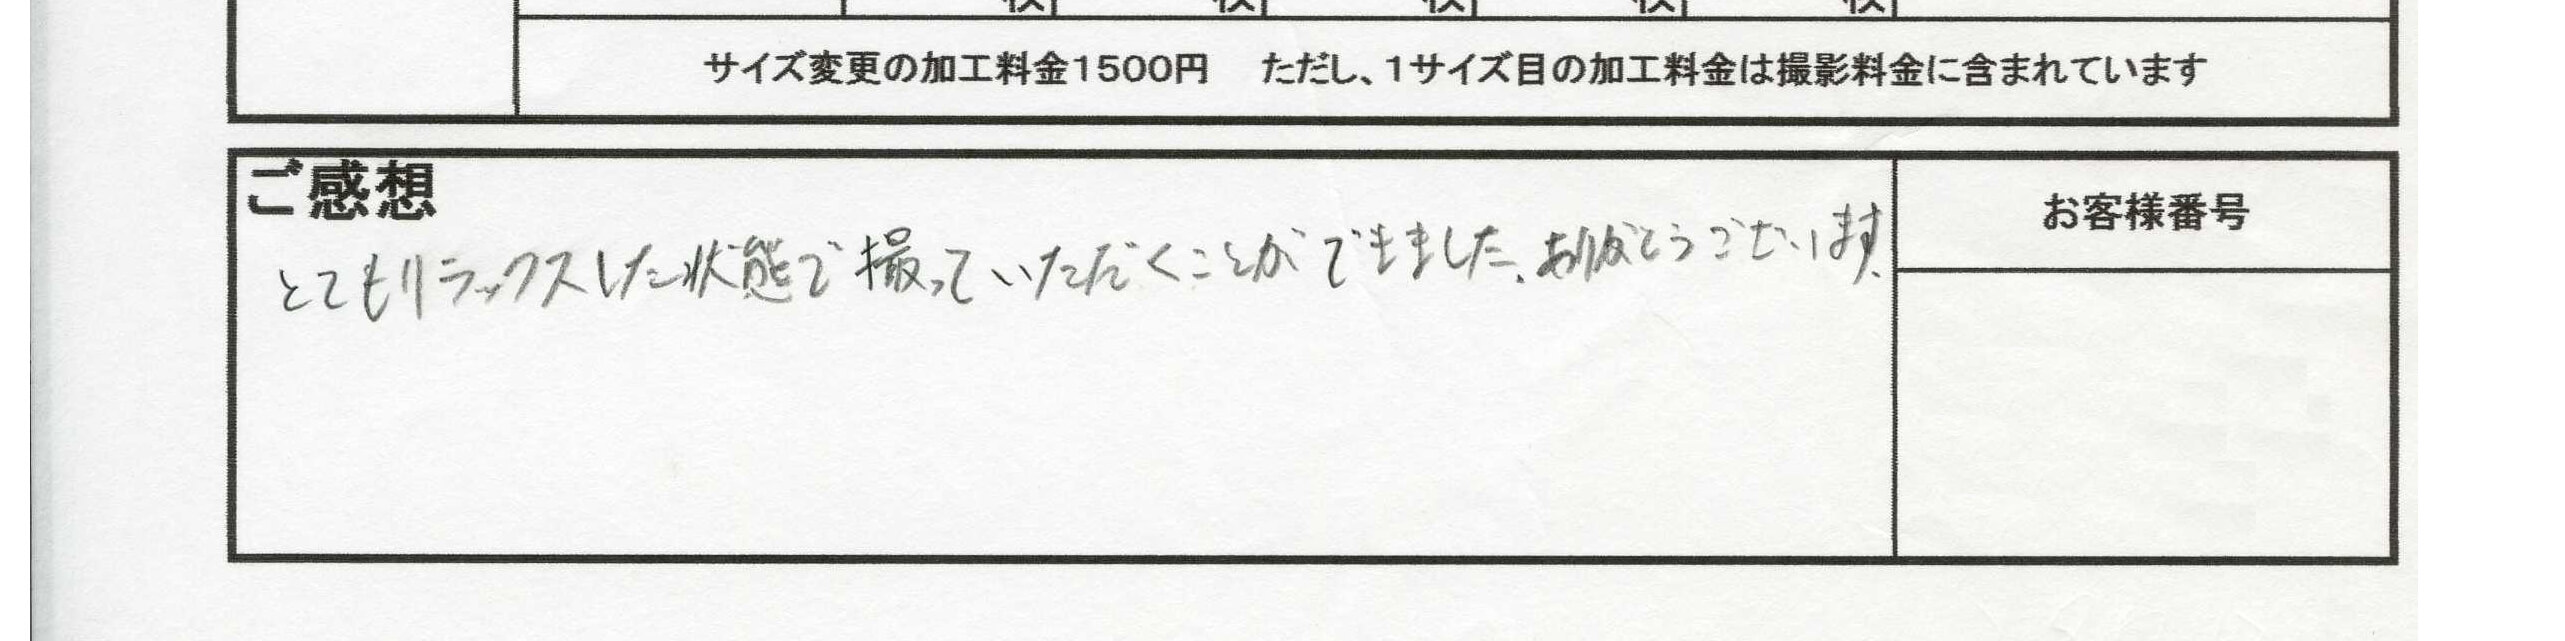 枚 枚 枚 枚 枚
サイズ変更の加工料金1500円　ただし、1サイズ目の加工料金は撮影料金に含まれています
ご感想
お客様番号
とてもリラックスした状態で撮っていただくことができました。ありがとうございます。